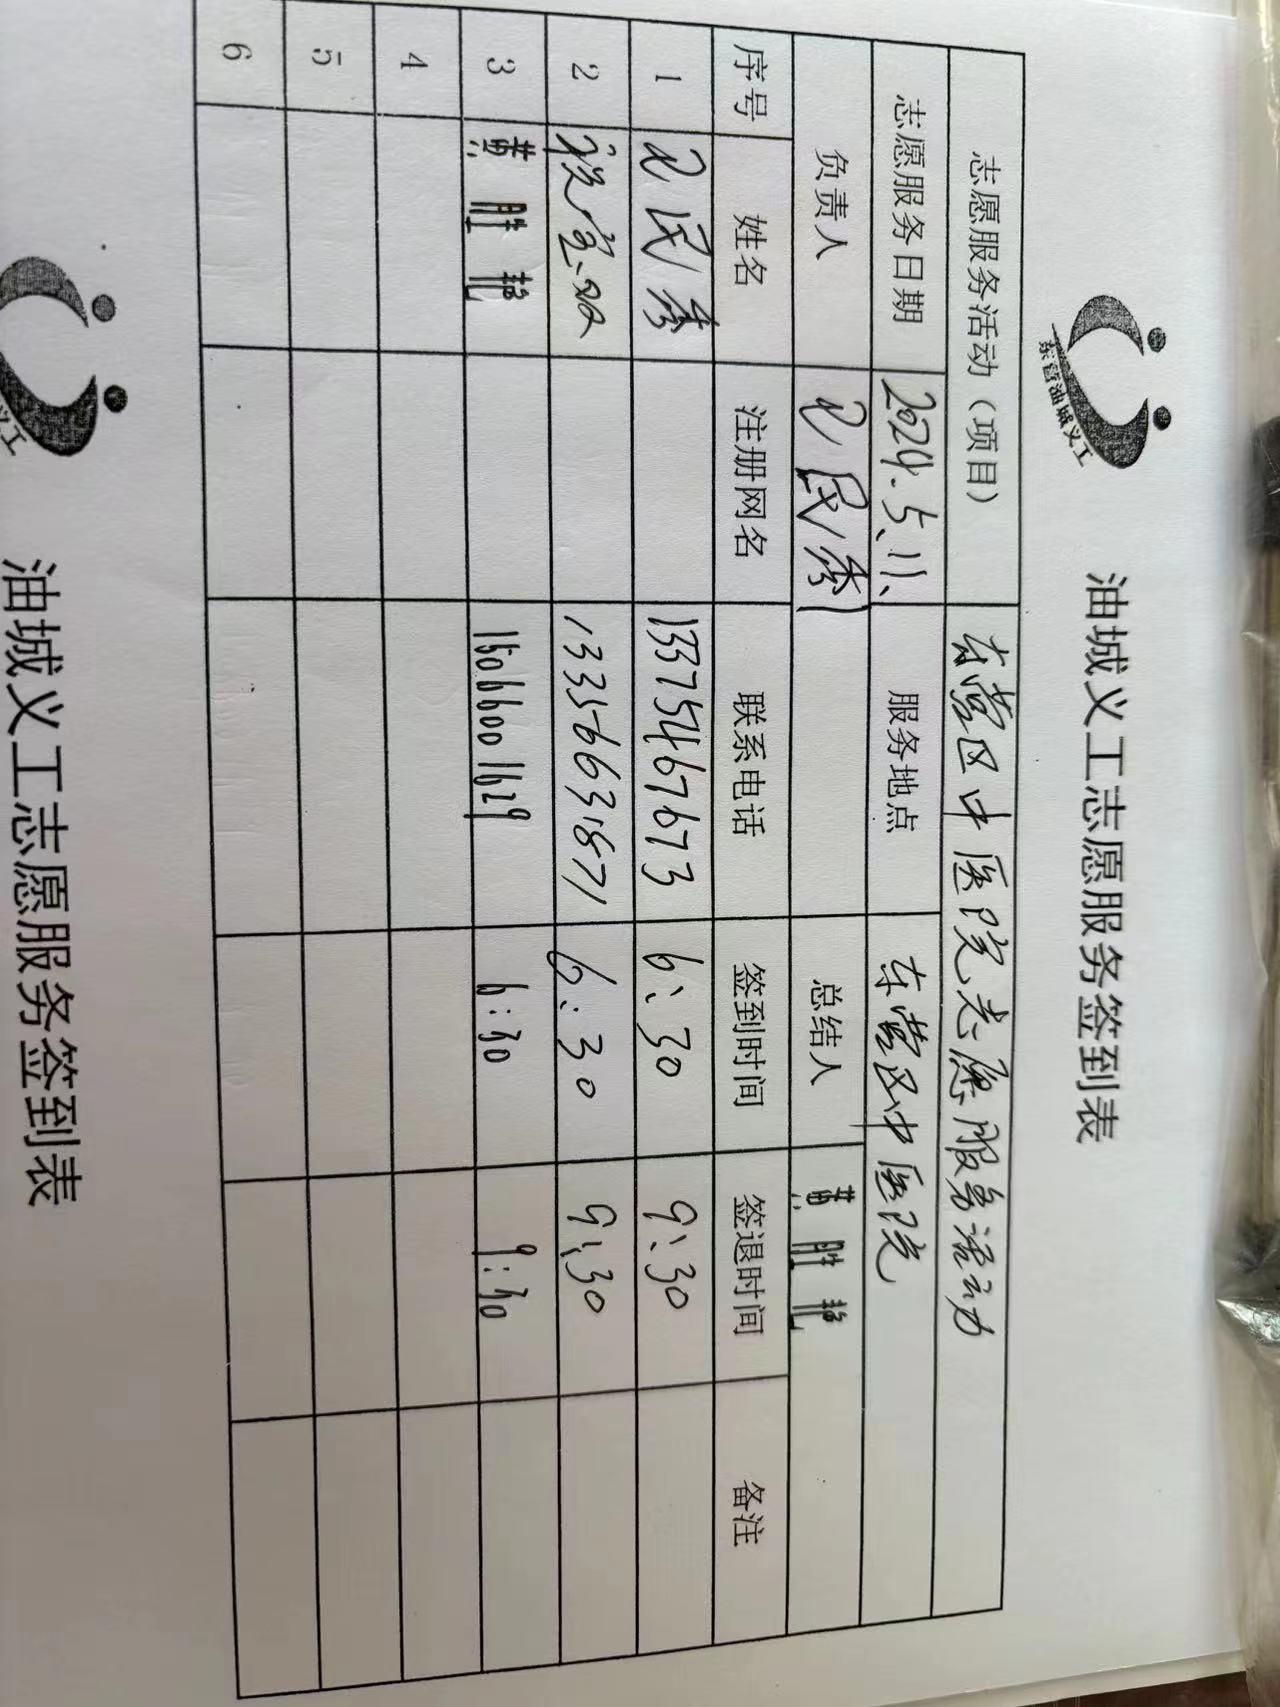 东营油城义工
油城义工志愿服务签到表
志愿服务活动（项目） 东营区中医院志愿服务活动
志愿服务日期 2024.5.11、 服务地点 东营区中医院
负责人 民秀 总结人 黄胜艳
序号 姓名 注册网名 联系电话 签到时间 签退时间 备注
1 民秀 13375467673 6:30 9:30
2 13356631871 6:30 9:30
3 黄胜艳 15066001629 6:30 9:30
4
5
6
义工
油城义工志愿服务签到表